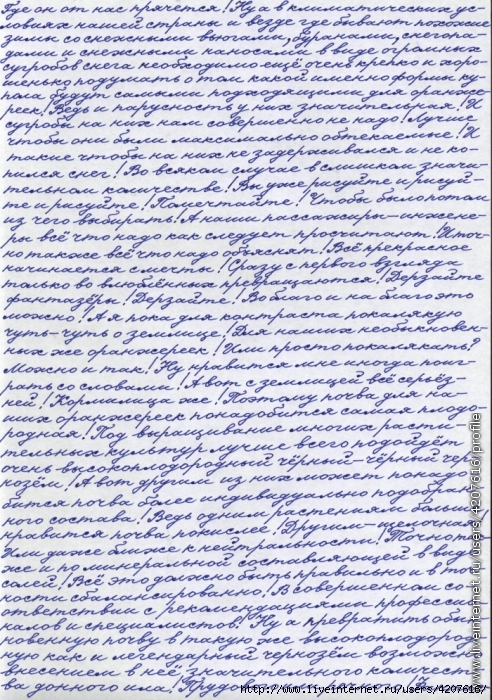 Где он от нас прячется! Ну а в климатических ус-
ловиях нашей страны и везде где бывают похожие
зимы со снежными вьюгами, буранами, снегопа-
дами и снежными наносами в виде огромных
сугробов снега необходимо ещё очень крепко и хоро-
шенько подумать о том какой именно формы ку-
пола будут самыми подходящими для оранже-
реек! Ведь и парусность у них значительная! И
сугробы на них нам совершенно не надо! Лучше
чтобы они были максимально обтекаемые! И
такие чтобы на них не задерживался и не ко-
пился снег! Во всяком случае в слишком значи-
тельном количестве! Вы уже рисуйте и рисуй-
те и рисуйте! Помечтайте! Чтобы было потом
из чего выбирать! А наши пассажиры-инжене-
ры всё что надо как следует просчитают! И точ-
но также всё что надо объяснят! Всё прекрасное
начинается с мечты! Сразу с первого взгляда
только во влюблённых превращаются! Дерзайте
фантазёры! Дерзайте! Во благо и на благо это
можно! А я пока для контраста покалякую
чуть-чуть о землице! Для наших необыкновен-
ных же оранжереек! Или просто покалякать?
Можно и так! Ну нравится мне иногда поиг-
рать со словами! А вот с землицей всё серьёз-
ней! Кормилица же! Поэтому почва для на-
ших оранжереек понадобится самая плодо-
родная! Под выращивание многих расти-
тельных культур лучше всего подойдёт
очень высокоплодородный чёрный-чёрный чер-
нозём! А вот другим из них может понадо-
бится почва более индивидуально подобран-
ного состава! Ведь одним растениям больше
нравится почва покислее! Другим-щелочная!
Или даже ближе к нейтральности! Точно так
же и по минеральной составляющей в виде
солей! Всё это должно быть правильно и в точ-
ности сбалансированно! В совершенном со-
ответствии с рекомендациями профессио-
налов и специалистов! Ну а превратить обык-
новенную почву в такую же высокоплодород-
ную как и легендарный чернозём возможно
внесением в неё значительного количест-
ва
http://www.liveinternet.ru/users/4207616/
www.liveinternet.ru/users/4207616/profile